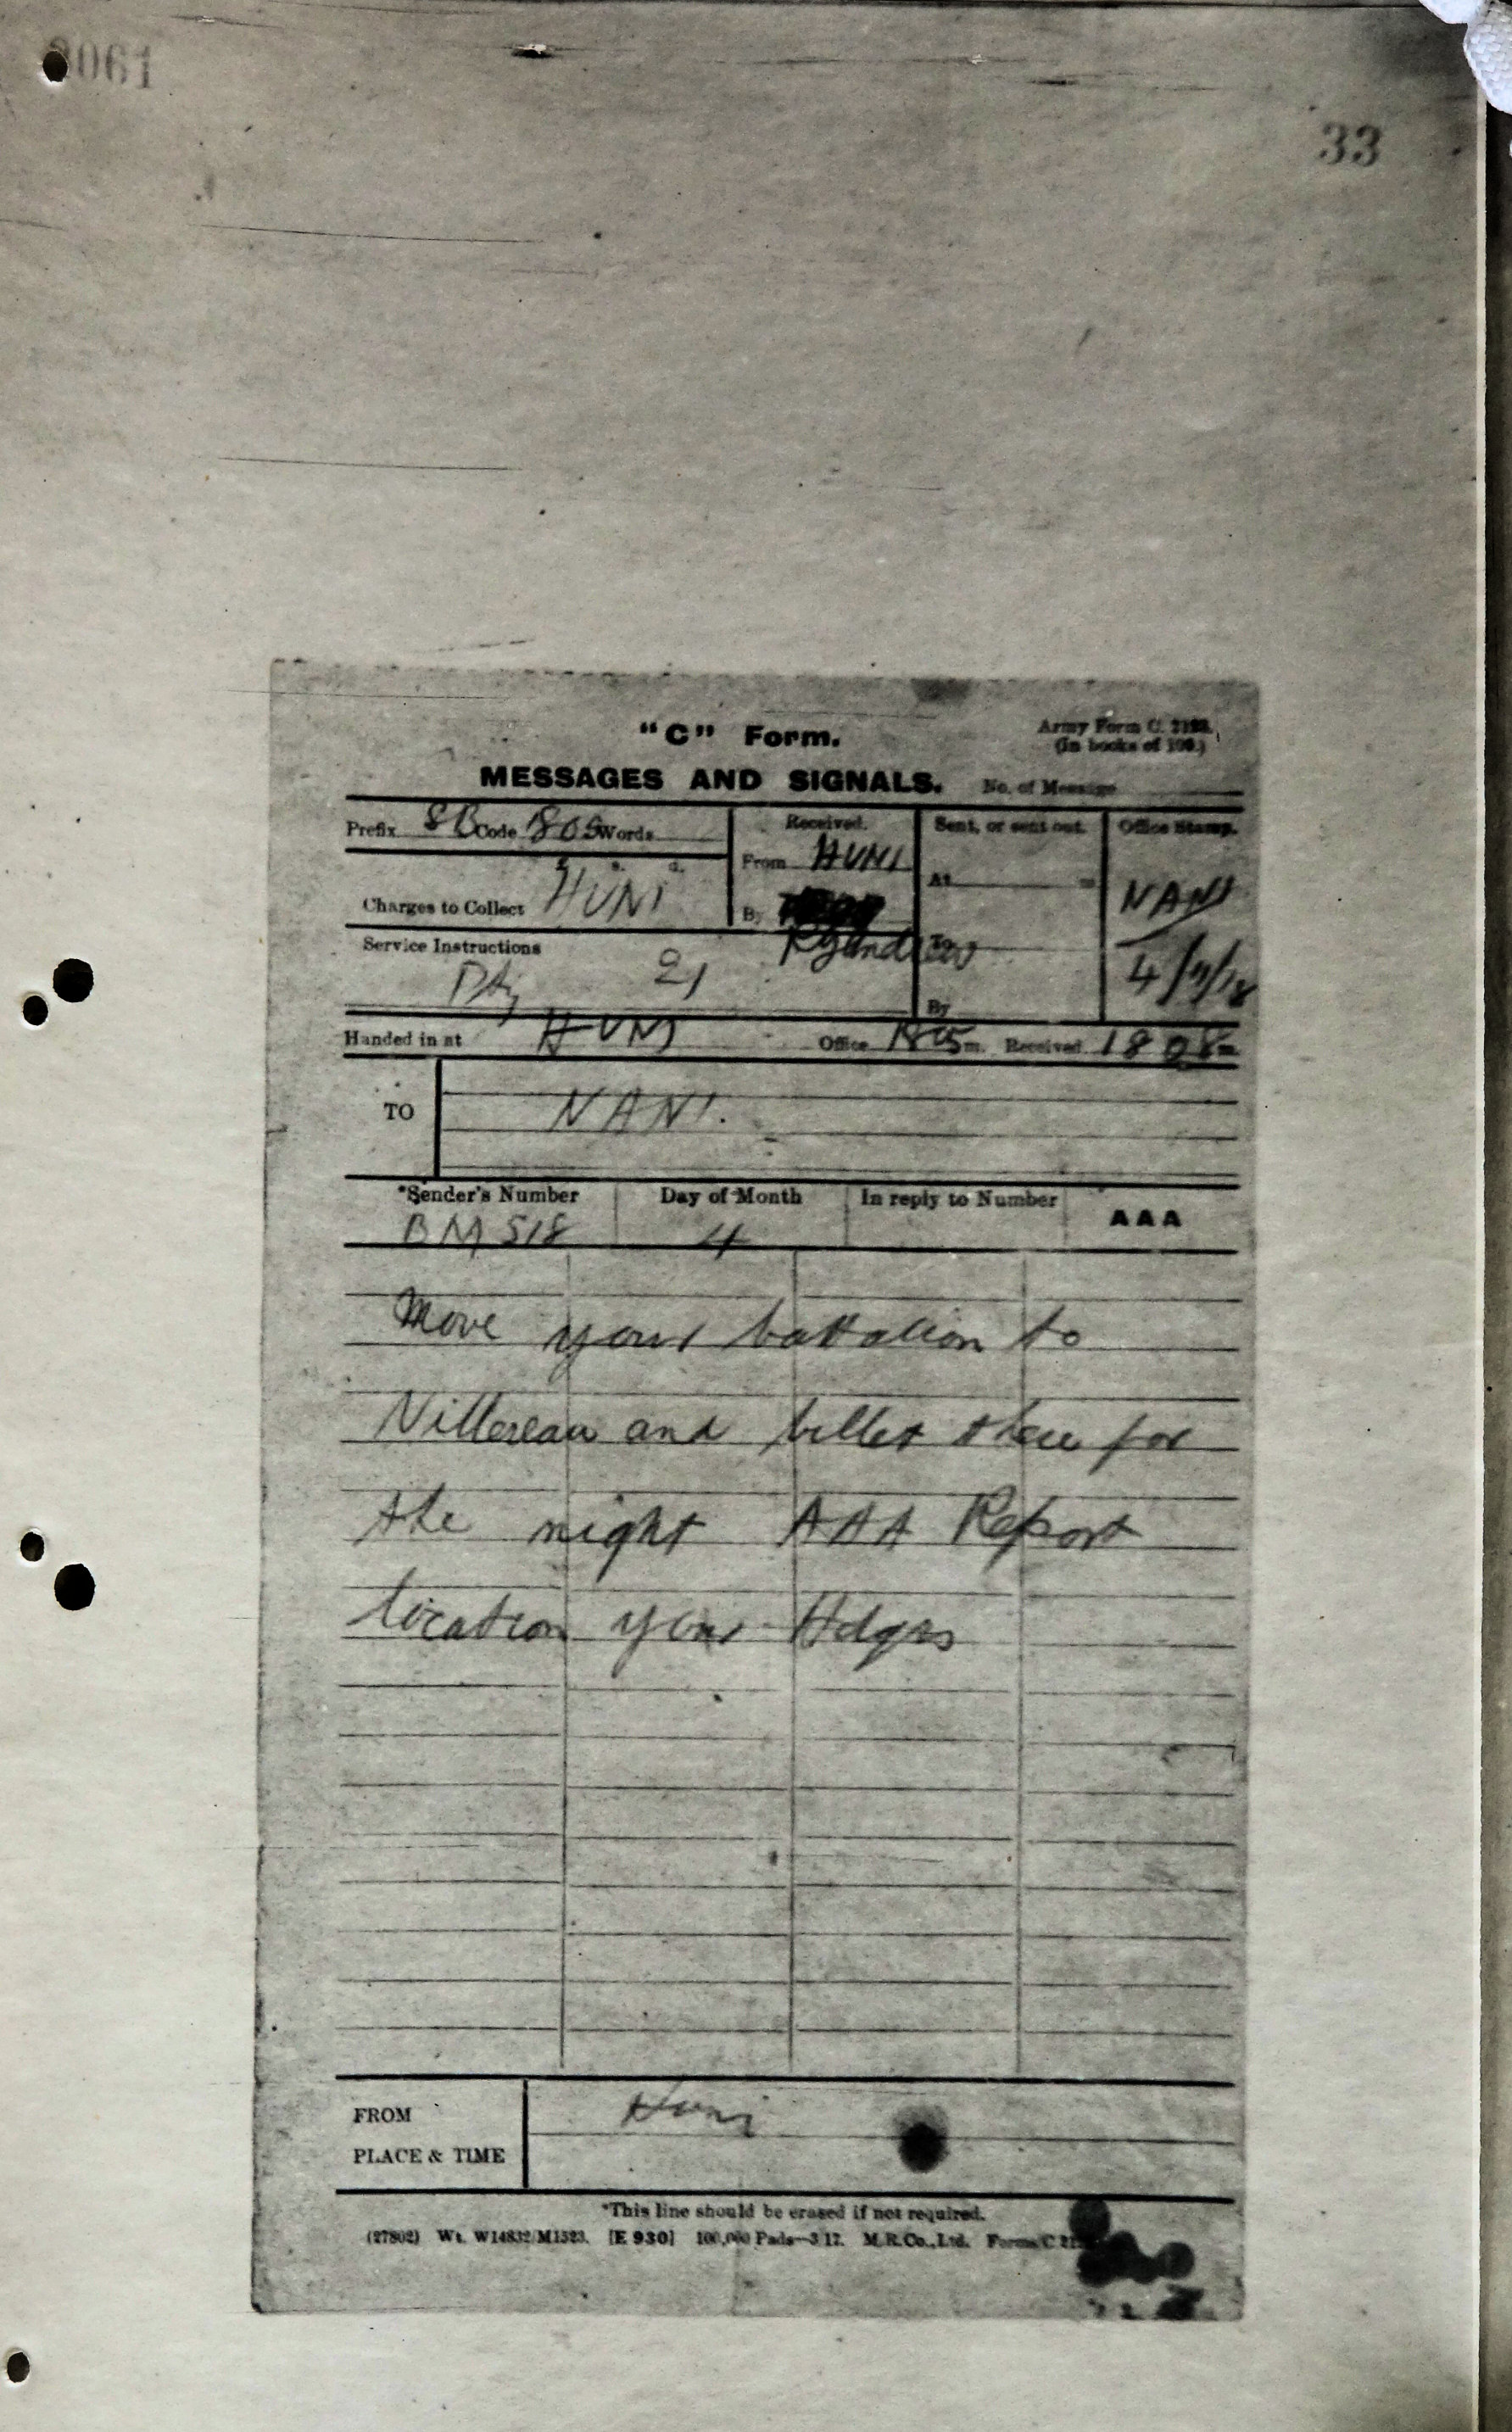 061
33
"C" Form.
Army Form C. 2123.
(In books of 100.)
MESSAGES AND SIGNALS.
No. of Message
Prefix SB Code 1805 Words
Received.
Sent, or sent out.
Office Stamp.
From HUNI
At m
NANI
s. d.
Charges to Collect HUNI
By
To
4/11/18
Service Instructions
21
By
Handed in at HUNI Office 1805 m. Received 1808 m
TO NANI.
*Sender's Number Day of Month In reply to Number AAA
BM 518 4
Move your battalion to
Villereau and billet there for
the night AAA Report
location your Hdqrs
FROM Huni
PLACE & TIME
*This line should be erased if not required.
(27802) Wt. W14832/M1523. [E 930] 100,000 Pads—3/17. M.R.Co., Ltd. Forms/C